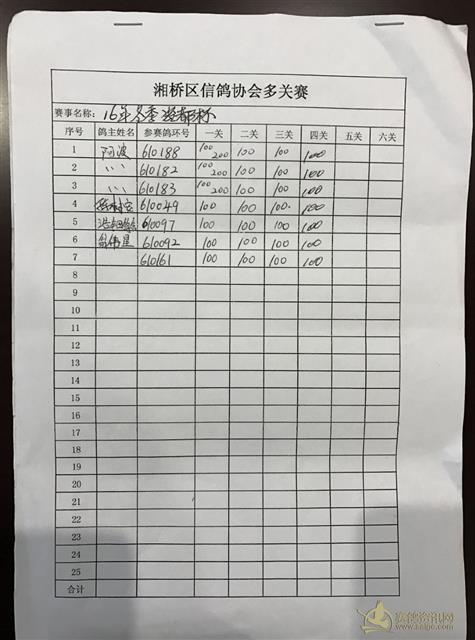 湘桥区信鸽协会多关赛
赛事名称: 16年冬季 杯
序号 鸽主姓名 参赛鸽环号 一关 二关 三关 四关 五关 六关
1 阿波 610188 100 200 100 100 100
2 〃 610182 100 200 100 100 100
3 〃 610183 100 200 100 100 100
4 610049 100 100 100 100
5 610097 100 100 100 100
6 610092 100 100 100 100
7 610161 100 100 100 100
8
9
10
11
12
13
14
15
16
17
18
19
20
21
22
23
24
25
合计
赛鸽资讯网
www.saige.com